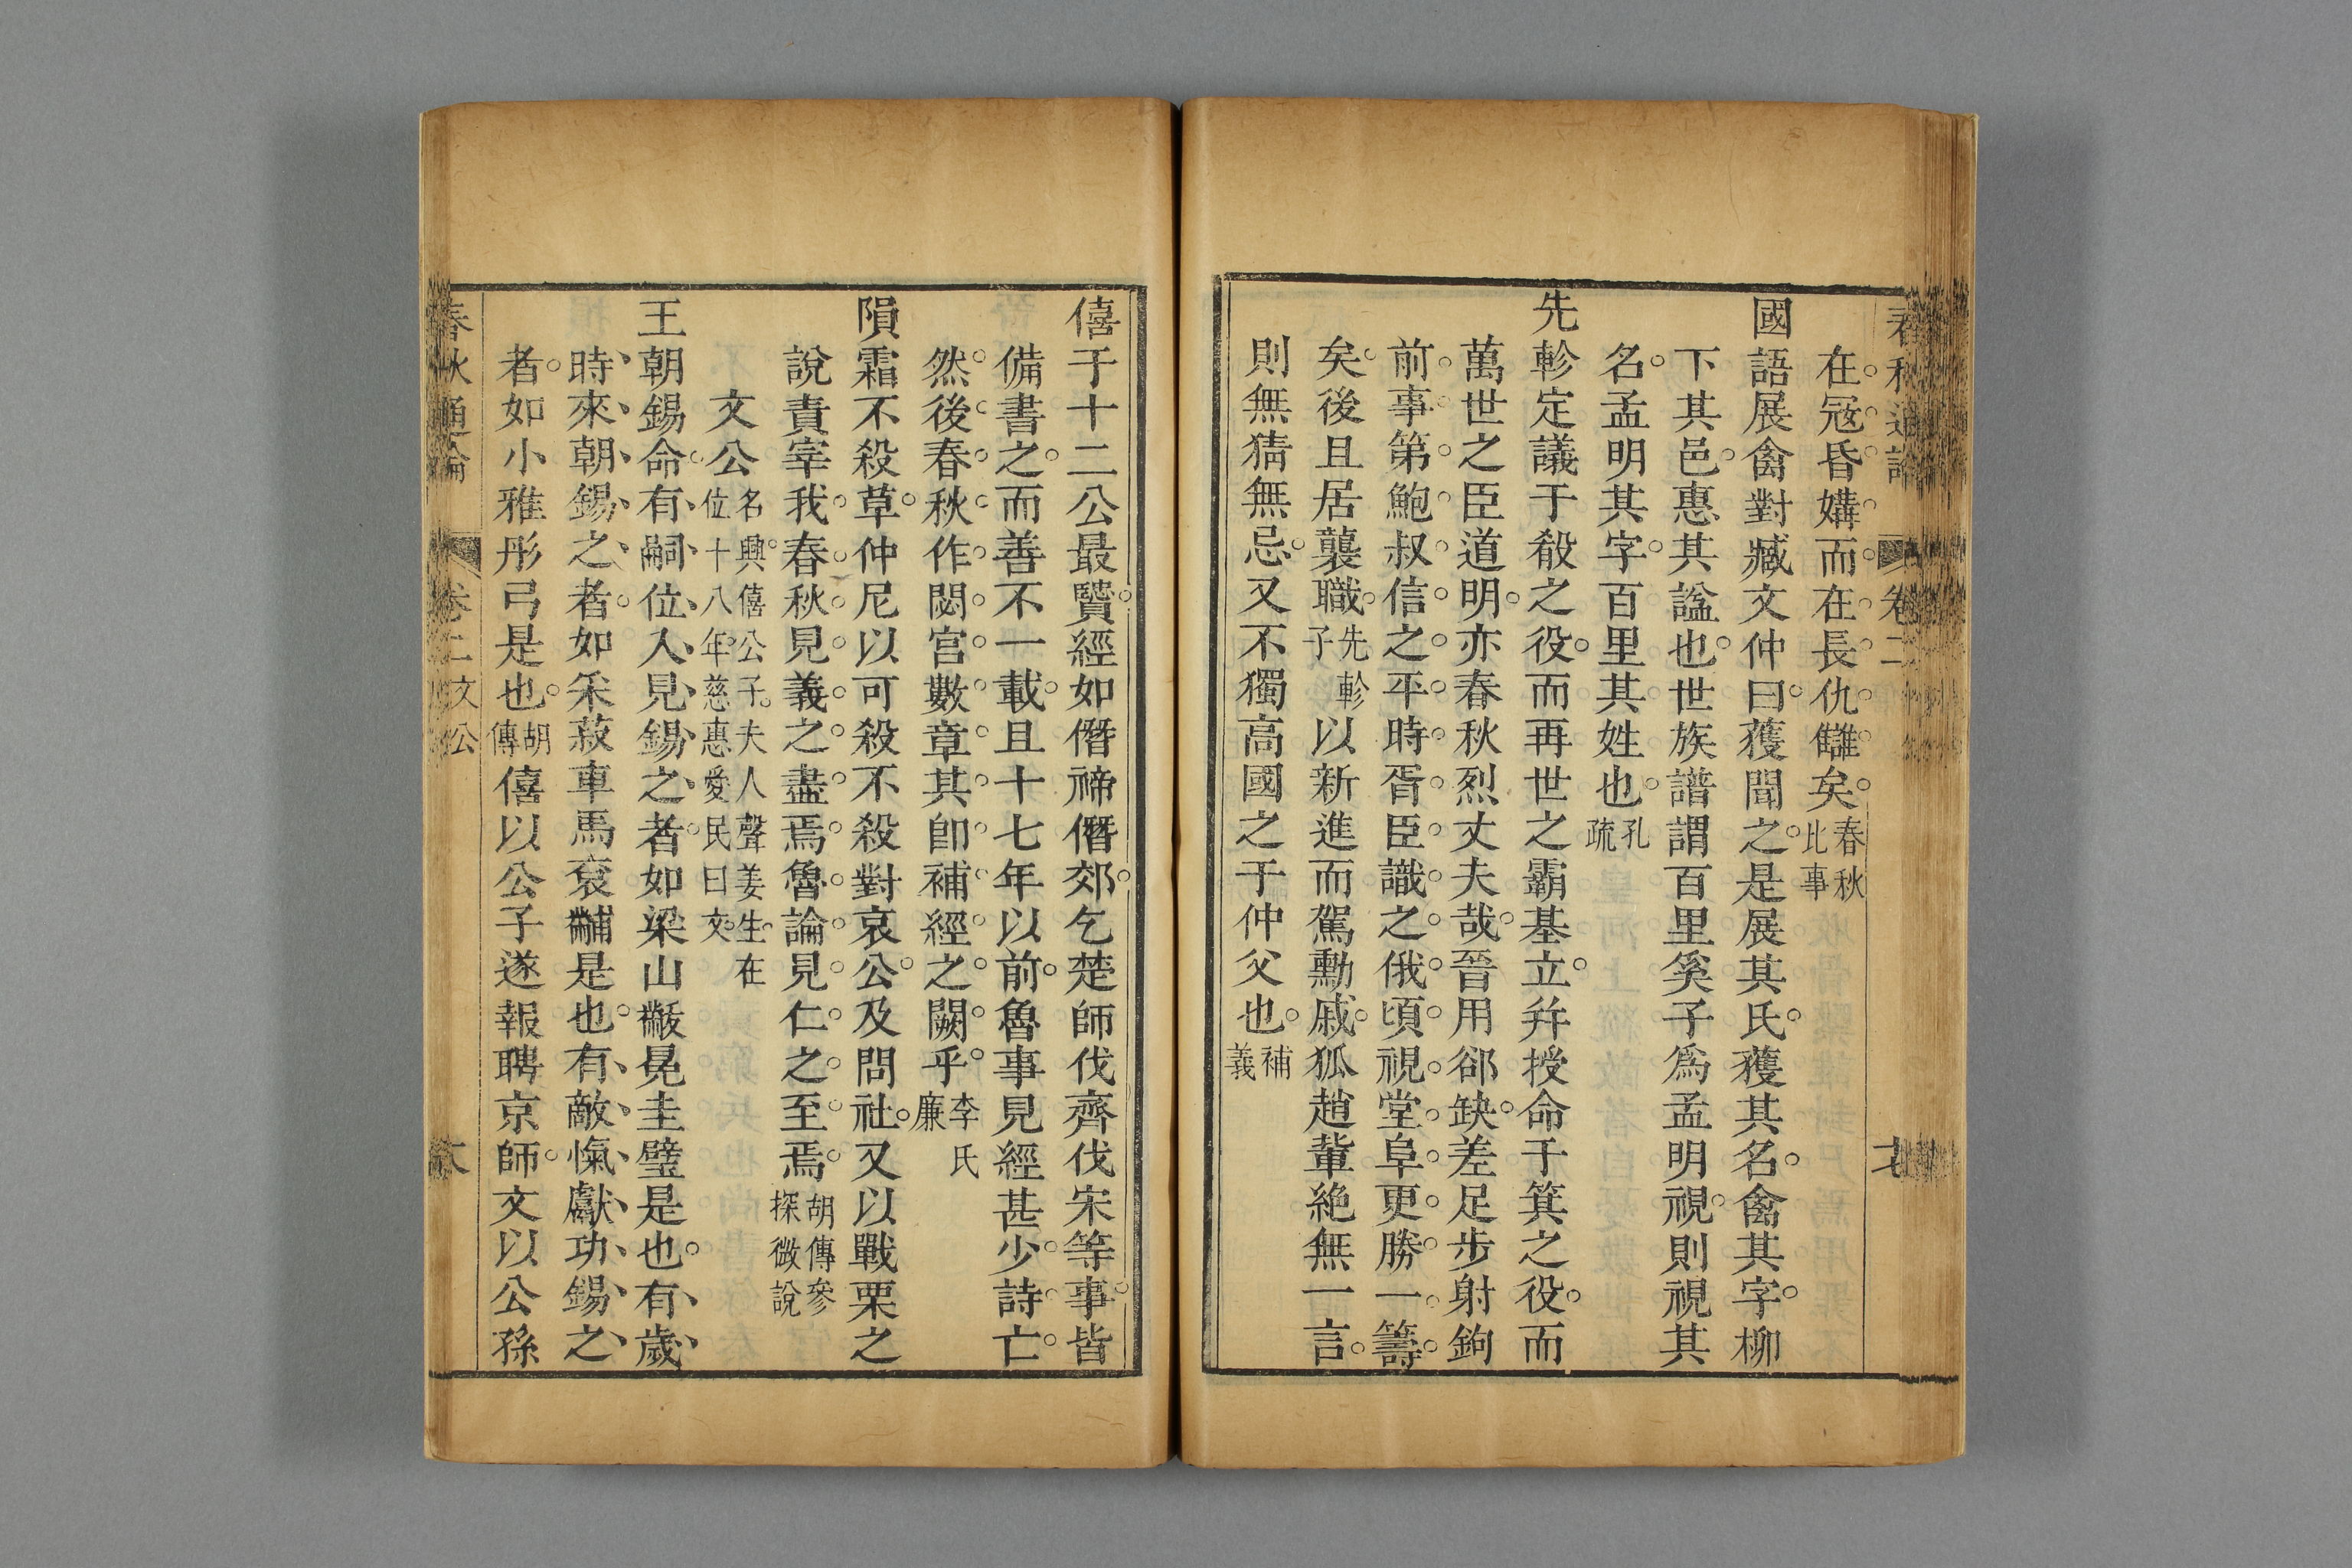 春秋通論 卷二
在冦昏媾而在長仇讎矣春秋比事
國語展禽對臧文仲曰獲聞之是展其氏獲其名禽其字柳
下其邑惠其謚也世族譜謂百里奚子爲孟明視則視其
名孟明其字百里其姓也孔疏
先軫定議于殽之役而再世之霸基立并授命于箕之役而
萬世之臣道明亦春秋烈丈夫哉晉用郤缺差足步射鉤
前事第鮑叔信之平時胥臣識之俄頃視堂阜更勝一籌
矣後且居襲職先軫子以新進而駕勳戚狐趙軰絶無一言
則無猜無忌又不獨高國之于仲父也補義
僖于十二公最賢經如僭禘僭郊乞楚師伐齊伐宋等事皆
備書之而善不一載且十七年以前魯事見經甚少詩亡
然後春秋作閟宫數章其卽補經之闕乎李氏廉
隕霜不殺草仲尼以可殺不殺對哀公及問社又以戰栗之
說責宰我春秋見義之盡焉魯論見仁之至焉胡傳參探微說
文公名興僖公子夫人聲姜生在位十八年慈惠愛民曰文
王朝錫命有嗣位入見錫之者如梁山黻冕圭璧是也有歲
時來朝錫之者如采菽車馬衮黼是也有敵愾獻功錫之
者如小雅彤弓是也胡傳僖以公子遂報聘京師文以公孫
春秋通論 卷二 文公